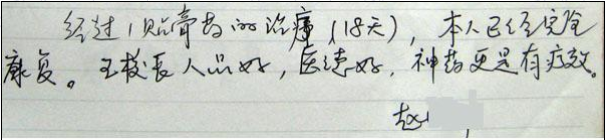 经过1贴膏药的治疗(18天),本人已经完全
康复。王校长人品好,医德好,神药更是有疗效。
赵